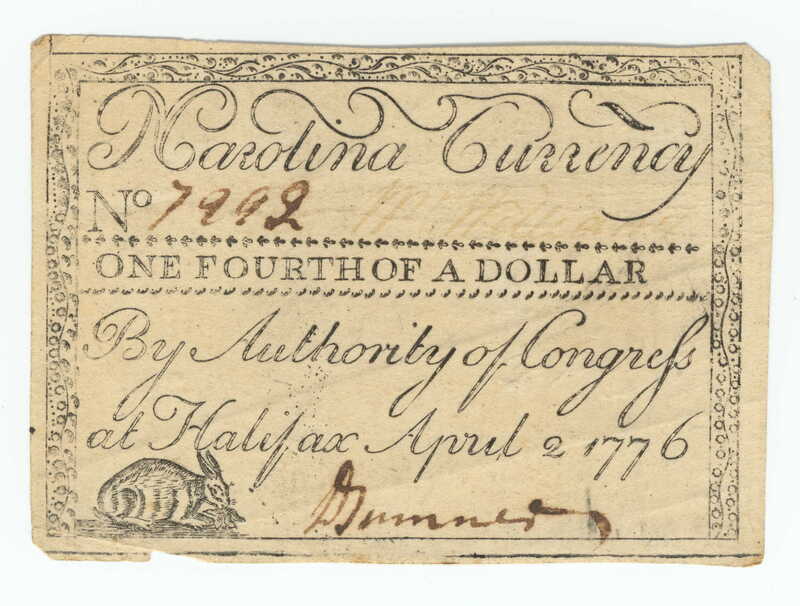 N Carolina Currency
No 7992
ONE FOURTH OF A DOLLAR
By Authority of Congress
at Halifax April 2 1776
J Sumner